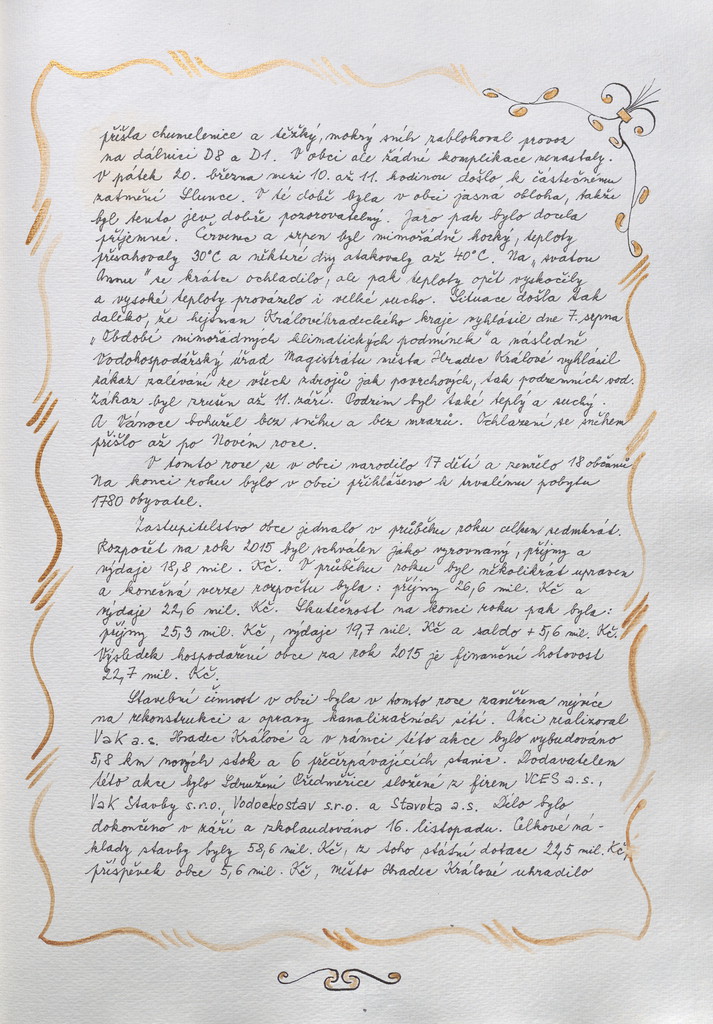 přišla chumelenice a těžký, mokrý sníh zablokoval provoz
na dálnici D8 a D1. V obci ale žádné komplikace nenastaly.
V pátek 20. března mezi 10. až 11. hodinou došlo k částečnému
zatmění Slunce. V té době byla v obci jasná obloha, takže
byl tento jev dobře pozorovatelný. Jaro pak bylo docela
příjemné. Červenec a srpen byl mimořádně horký, teploty
přesahovaly 30°C a některé dny atakovaly až 40°C. Na „svatou
Annu" se krátce ochladilo, ale pak teploty opět vyskočily
a vysoké teploty provázelo i velké sucho. Situace došla tak
daleko, že hejtman Královéhradeckého kraje vyhlásil dne 7. srpna
„Období mimořádných klimatických podmínek" a následně
Vodohospodářský úřad Magistrátu města Hradec Králové vyhlásil
zákaz zalévání ze všech zdrojů jak povrchových, tak podzemních vod.
Zákaz byl zrušen až 11. září. Podzim byl také teplý a suchý.
A Vánoce bohužel bez sněhu a bez mrazů. Ochlazení se sněhem
přišlo až po Novém roce.
V tomto roce se v obci narodilo 17 dětí a zemřelo 18 občanů.
Na konci roku bylo v obci přihlášeno k trvalému pobytu
1780 obyvatel.
Zastupitelstvo obce jednalo v průběhu roku celkem sedmkrát.
Rozpočet na rok 2015 byl schválen jako vyrovnaný, příjmy a
výdaje 18,8 mil. Kč. V průběhu roku byl několikrát upraven
a konečná verze rozpočtu byla: příjmy 26,6 mil. Kč a
výdaje 22,6 mil. Kč. Skutečnost na konci roku pak byla:
příjmy 25,3 mil. Kč, výdaje 19,7 mil. Kč a saldo +5,6 mil. Kč.
Výsledek hospodaření obce za rok 2015 je finanční hotovost
22,7 mil. Kč.
Stavební činnost v obci byla v tomto roce zaměřena nejvíce
na rekonstrukci a opravy kanalizačních sítí. Akci realizoval
VaK a.s. Hradec Králové a v rámci této akce bylo vybudováno
5,8 km nových stok a 6 přečerpávajících stanic. Dodavatelem
této akce bylo Sdružení Předměřice složené z firem VCES a.s.,
VaK Stavby s.r.o., Vodoekostav s.r.o. a Stavoka a.s. Dílo bylo
dokončeno v září a zkolaudováno 16. listopadu. Celkové ná-
klady stavby byly 58,6 mil. Kč, z toho státní dotace 22,5 mil. Kč,
příspěvek obce 5,6 mil. Kč, město Hradec Králové uhradilo